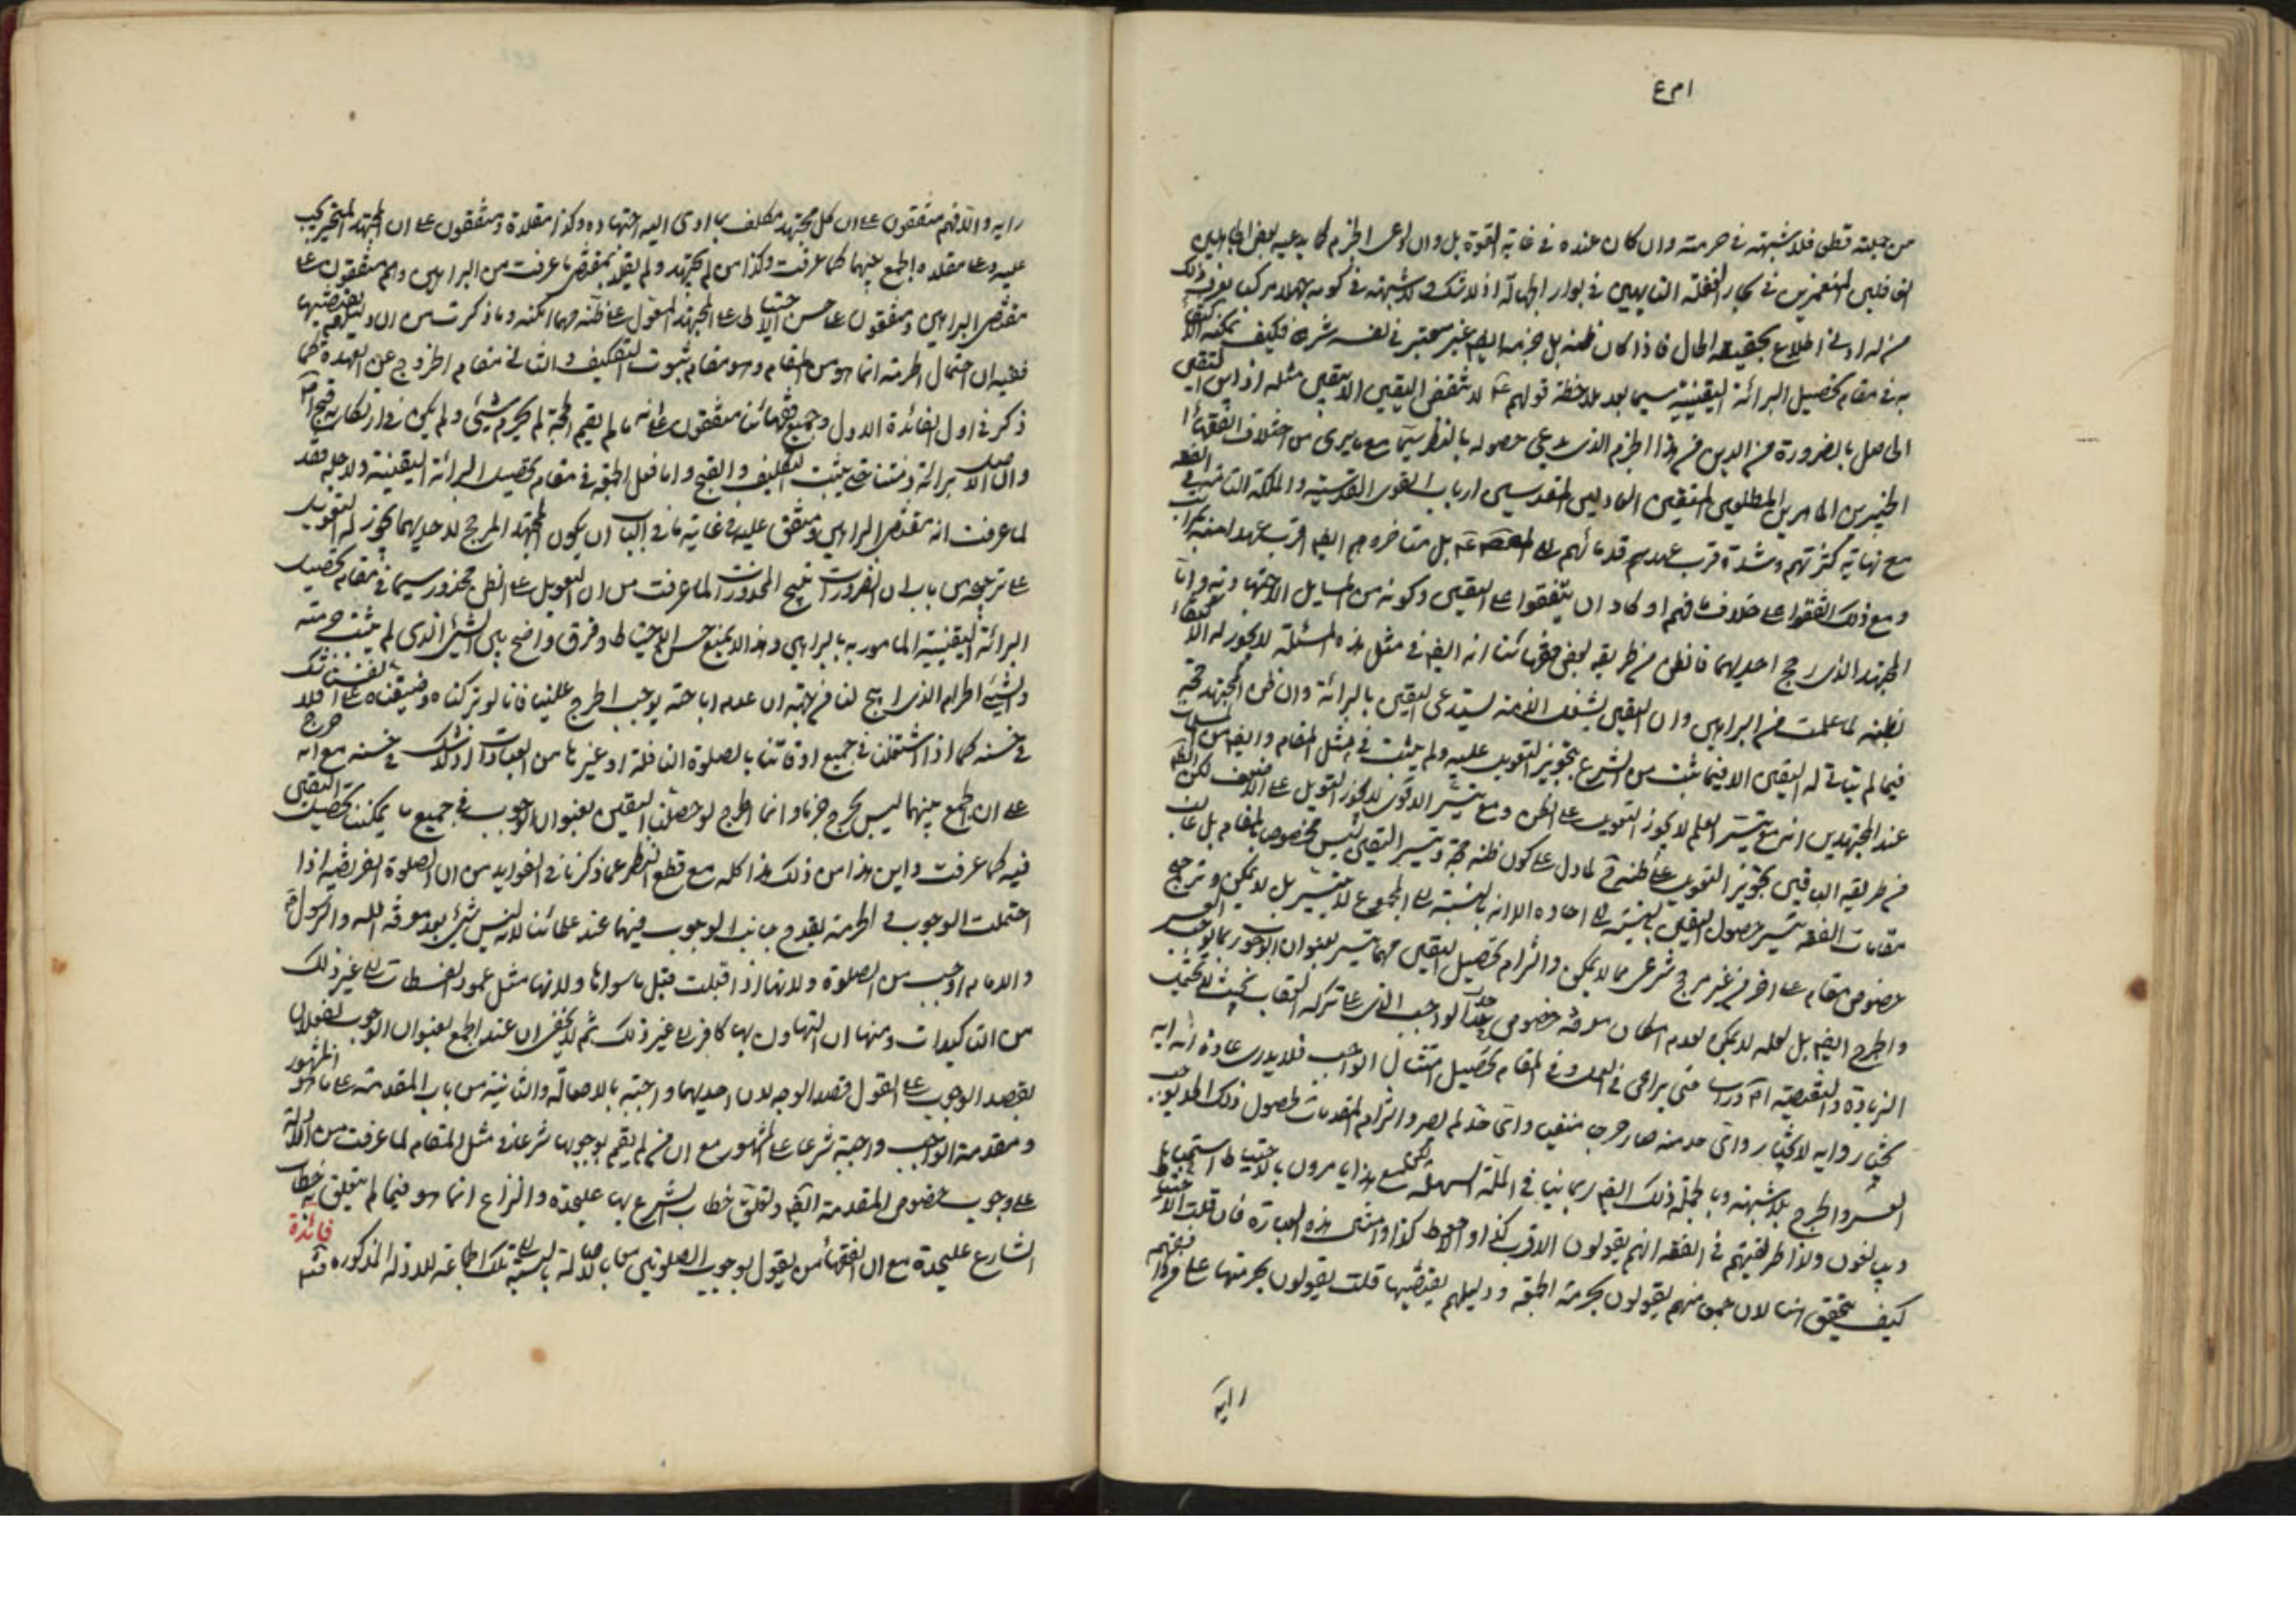 من جملته قطعي فلا شبهة في حرمته وان كان عنده في غاية القوة بل وان ادعى الجزم كما يدعيه بعض الجاهلين
الغافلين المنغمرين في بحار الغفلة التايهين في بوار الجهالة اذ لا شك ولا شبهة في كونه جهلا مركبا يعرف ذلك
من له ادنى اطلاع بحقيقة الحال فاذا كان ظنه بل جزمه ايضا غير معتبر في نفسه شرعا فكيف يمكنه الاكتفاء
به في مقام تحصيل البرائة اليقينية سيما بعد ملاحظة قولهم ع لا تنقض اليقين الا بيقين مثله اذ اين اليقين
الحاصل بالضرورة من الدين من هذا الجزم الذي يدعي حصوله بالنظر سيما مع ما يرى من اختلاف الفقهاء
الخبيرين الماهرين المطلعين المتقين العادلين المقدسين ارباب القوى القدسية والملكة التامة في الفقه
مع نهاية كثرتهم وشدة قرب عهد قدمائهم الى بل متاخروهم ايضا اقرب عهدا منه
ومع ذلك اتفقوا على خلاف ما فهم او كاد ان يتفقوا على اليقين وكونه من المسايل الاجتهادية واما
المجتهد الذي رجح احديهما فالظن من طريقة بعض فقهائنا انه ايضا في مثل هذه المسئلة لا يجوز له الاكتفاء
بظنه لما علمت من البراهين وان اليقين بشغل الذمة يستدعي اليقين بالبرائة وان ظن المجتهد حجة
فيما لم يتات له اليقين الا فيما ثبت من الشرع تجويز التعويل عليه ولم يثبت في مثل المقام وايضا من المسلمات
عند المجتهدين انه مع تيسر العلم لا يجوز التعويل على الظن ومع تيسر الاقوى لا يجوز التعويل على الاضعف لكن الظاهر
من طريقة الباقين تجويز التعويل على ظنه لما دل على كون ظنه حجة وتيسر اليقين ليس مخصوص بالمقام بل غالب
مقامات الفقه يتيسر حصول اليقين بالنسبة الى احاده الا انه بالنسبة الى المجموع لا يتيسر بل لا يمكن وترجيح
خصوص مقام على اخر من غير مرجح شرعي مما لا يمكن والتزام تحصيل اليقين مهما تيسر بعنوان الوجوب يوجب العسر
والحرج ايضا بل لعله لا يمكن لعدم امكان معرفة خصوص حد الواجب الذي على تركه العقاب بحيث لا يحتمل
الزيادة والنقيصة متى يراعى في العمل وفي المقام تحصيل امتثال الواجب فلا يدري عادة انه اية
يختار واية لا يختار واي حد منه صار حرجا منفيا واي حد لم يصر والتزام المقدمات لحصول ذلك الحد يوجب
العسر والحرج بلا شبهة وبالجملة ذلك ايضا ربما ينافي الملة السهلة لكن مع هذا يامرون بالاحتياط استحبابا
ويبالغون ولذا طريقتهم في الفقه انهم يقولون الاقرب كذا والاحوط كذا وامثال هذه العبارة فان قلت الاحتياط
كيف يتحقق هنا لان جمعا منهم يقولون بحرمة الجمعة ودليلهم يقتضيها قلت يقولون بحرمتها على
رايه
رايه والا فهم متفقون على ان كل مجتهد مكلف بما ادى اليه اجتهاده وكذا مقلده ومتفقون على ان المجتهد المتحير يجب
عليه وعلى مقلده الجمع بينهما كما عرفت وكذا من لم يجتهد ولم يقلد بمقتضى ما عرفت من البراهين وهم متفقون على
مقتضى البراهين ومتفقون على حسن الاحتياط على المجتهد المعول على ظنه مهما امكنه وما ذكرت من ان دليلهم يقتضيها
ففيه ان احتمال الحرمة انما هو من المقام وهو مقام ثبوت التكليف والثاني مقام الخروج عن العهدة كما
ذكر في اول الفائدة الاول وجميع فقهائنا متفقون على انه ما لم يقم الحجة لم يحرم شيئ ولم يكن في ارتكابه قبح
والاصل برائة ذمتنا حتى يثبت التكليف والقبح واما فعل الجمعة في مقام تحصيل البرائة اليقينية ولاجله فقد
لما عرفت انه مقتضى البراهين ومتفق عليه غاية ما في الباب ان يكون المجتهد المرجح لاحديهما يجوز له التعويل
على ترجيحه من باب ان الضرورات تبيح المحذورات لما عرفت من ان التعويل على الظن محذور سيما في مقام تحصيل
البرائة اليقينية المامور به بالبراهين وهذا لا يمنع حسن الاحتياط وفرق واضح بين الشيئ الذي لم يثبت حرمته
والشيئ الحرام الذي ابيح لنا من جهة ان عدم اباحته يوجب الحرج علينا فانا لو تركناه وضيقنا على انفسنا فلا شك
في حسنه كما اذا اشتغلنا في جميع اوقاتنا بالصلوة النافلة او غيرها من العبادات اذ لا شك في حسنه مع انه حرج
على ان الجمع بينهما ليس بحرج جزما وانما الحرج لو حصلنا اليقين بعنوان الوجوب في جميع ما يمكننا تحصيل اليقين
فيه كما عرفت واين هذا من ذلك هذا كله مع قطع النظر عما ذكرنا في الفوايد من ان الصلوة الفريضة اذا
احتملت الوجوب والحرمة يقدم جانب الوجوب فيهما عند علمائنا لانه ليس شيئ بعد معرفة الله والرسول ص
والامام اوجب من الصلوة ولانها اذا قبلت قبل ما سواها ولانها مثل عمود الفسطاط الى غير ذلك
من التاكيدات ومنها ان التهاون بها كافر الى غير ذلك ثم لا يخفى ان عند الجمع بعنوان الوجوب
يقصد الوجوب على القول بقصد الوجه لان احديهما واجبة بالاصالة والثانية من باب المقدمة على ما هو المشهور
ومقدمة الواجب واجبة شرعا على المشهور مع ان من لم يقم بوجوبها شرعا في مثل المقام لما عرفت من الادلة
على وجوب خصوص المقدمة ايضا وتعلق خطاب الشرع بها عليحدة والنزاع انما هو فيما لم يتعلق به خطاب
الشارع عليحدة مع ان من الفقهاء من يقول بوجوب الصلوتين بالاصالة بالنسبة الى تلك الجماعة للادلة المذكورة فائدة